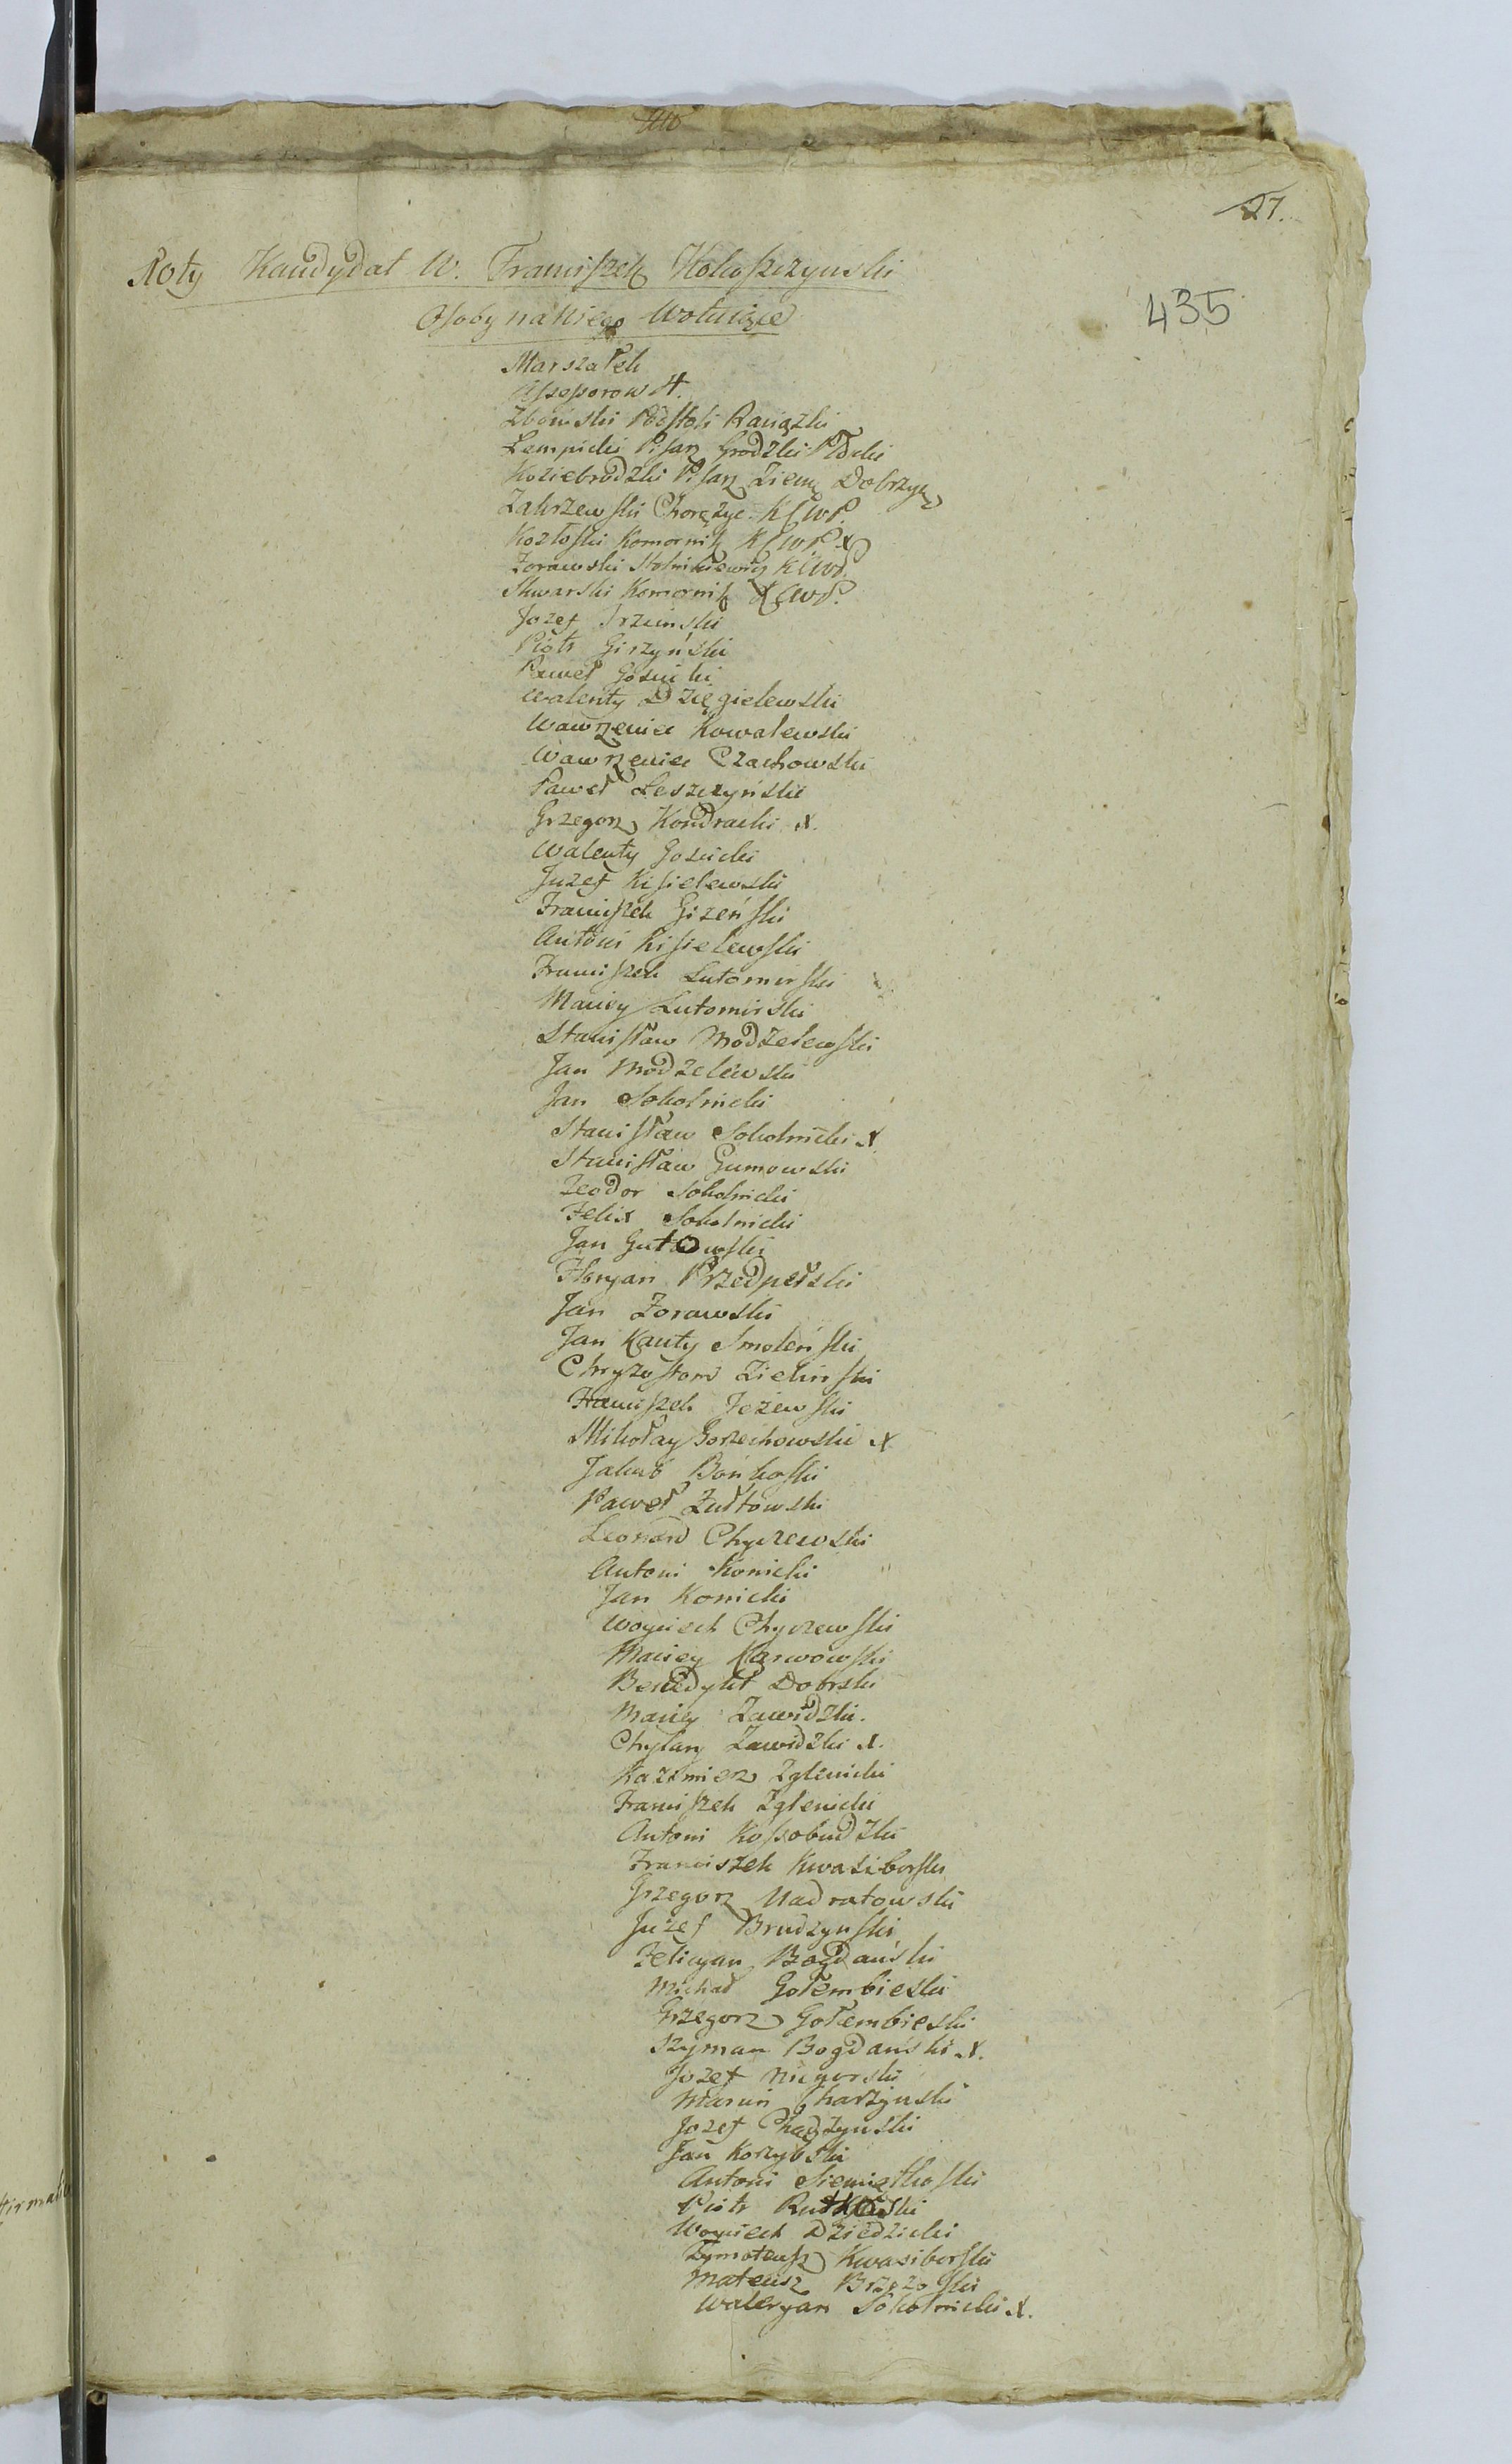 27.
435
Noty Kandydat W. Franciszek Kokoszczynski
Osoby na Niego Wotuiące
Marszałek
Assessorow 4.
Zboinski Podstoli Raciązki
Lempicki Pisarz Grodzki Płocki
Koziebrodzki Pisarz Ziems Dobrzyn
Zakrzewski Chorązyc KCWP.
Kozłoski Komornik KCWP X
Zorawski Stolnikiewicz KCWP.
Skwarski Komornik KCWP.
Jozef Jrzeinski
Piotr Girzyński
Paweł Gosicki
Walenty Dzięgielewski
Wawrzeniec Kowalewski
Wawrzeniec Czachowski
Paweł Leszczyński
Grzegorz Kondracki X.
Walenty Gosicki
Juzef Kisielewski
Franciszek Gizeński
Antoni Kisielewski
Franciszek Lutomirski
Maciey Lutomirski
Stanisław Modzelewski
Jan Modzelewski
Jan Sokolnicki
Stanisław Sokolnicki X.
Stanisław Gumowski
Teodor Sokolnicki
Felix Sokolnicki
Jan Gutowski
Floryan Przedpełski
Jan Zorawski
Jan Kanty Smoleński
Chryzostom Zielinski
Franciszek Jeżewski
Mikołay Gorzechowski X
Jakub Bońkoski
Paweł Zułtowski
Leonard Chyczewski
Antoni Konicki
Jan Konicki
Woyciech Chyczewski
Maciey Karwowski
Benedykt Dobrski
Maciey Zawidzki.
Chylary Zawidzki X.
Kazimierz Zglenicki
Franciszek Zglenicki
Antoni Kossobudzki
Franciszek Kwasiborski
Grzegorz Nadratowski
Juzef Brudzynski
Felicyan Bogdański
Michał Gołembieski
Grzegorz Gołembieski
Szyman Bogdański X.
Jozef
Marcin Charzynski
Jozef Charzynski
Jan Korzybski
Antoni Siemiątkoski
Piotr Rutkowski
Woyciech Dziedzicki
Tymoteusz Kwasiborski
Mateusz Brzozoski
Waleryan Sokolnicki X.